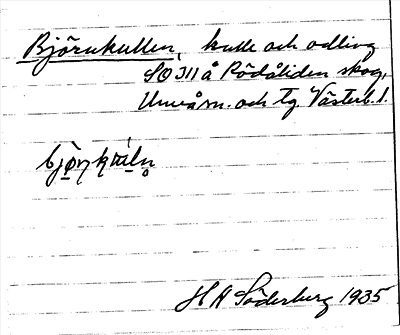 Björnkullen, kulle och odling
SO 311 å Rödåliden skog,
Umeå sn. och tg. Västerb. l.
H A Söderberg 1935